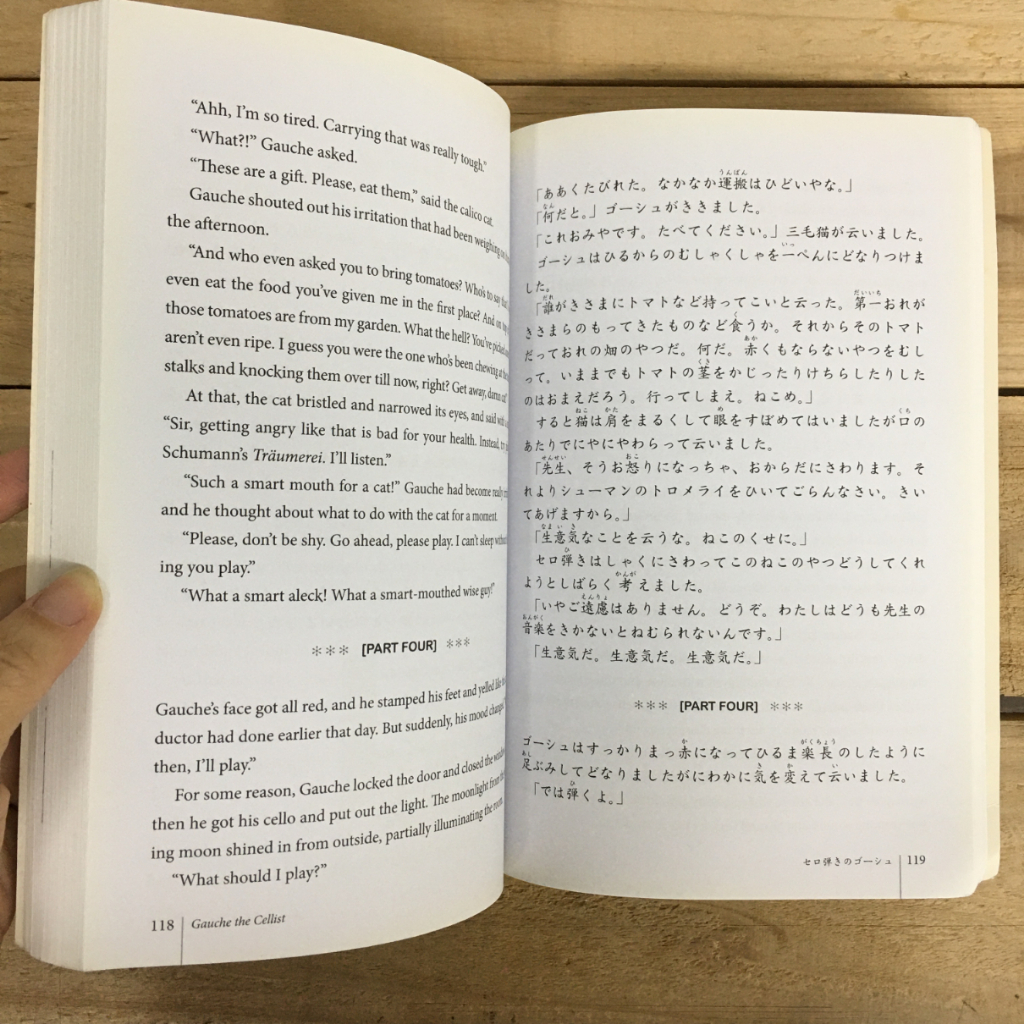 “Ahh, I’m so tired. Carrying that was really tough.”
“What?!” Gauche asked.
“These are a gift. Please, eat them,” said the calico cat.
Gauche shouted out his irritation that had been weighing on
the afternoon.
“And who even asked you to bring tomatoes? Who’s to say that
even eat the food you’ve given me in the first place? And on top
those tomatoes are from my garden. What the hell? You’ve picked
aren’t even ripe. I guess you were the one who’s been chewing at the
stalks and knocking them over till now, right? Get away, damn cat
At that, the cat bristled and narrowed its eyes, and said with
“Sir, getting angry like that is bad for your health. Instead, try
Schumann’s Träumerei. I’ll listen.”
“Such a smart mouth for a cat!” Gauche had become really
and he thought about what to do with the cat for a moment.
“Please, don’t be shy. Go ahead, please play. I can’t sleep without
ing you play.”
“What a smart aleck! What a smart-mouthed wise guy!”
*** [PART FOUR] ***
Gauche’s face got all red, and he stamped his feet and yelled like
ductor had done earlier that day. But suddenly, his mood changed.
then, I’ll play.”
For some reason, Gauche locked the door and closed the window
then he got his cello and put out the light. The moonlight from the
ing moon shined in from outside, partially illuminating the room.
“What should I play?”
118 Gauche the Cellist
「ああくたびれた。なかなか運搬はひどいやな。」
「何だと。」ゴーシュがききました。
「これおみやです。たべてください。」三毛猫が云いました。
ゴーシュはひるからのむしゃくしゃを一ぺんにどなりつけま
した。
「誰がきさまにトマトなど持ってこいと云った。第一おれが
きさまらのもってきたものなど食うか。それからそのトマト
だっておれの畑のやつだ。何だ。赤くもならないやつをむし
って。いままでもトマトの茎をかじったりけちらしたりした
のはおまえだろう。行ってしまえ。ねこめ。」
すると猫は肩をまるくして眼をすぼめてはいましたが口の
あたりでにやにやわらって云いました。
「先生、そうお怒りになっちゃ、おからだにさわります。そ
れよりシューマンのトロメライをひいてごらんなさい。きい
てあげますから。」
「生意気なことを云うな。ねこのくせに。」
セロ弾きはしゃくにさわってこのねこのやつどうしてくれ
ようとしばらく考えました。
「いやご遠慮はありません。どうぞ。わたしはどうも先生の
音楽をきかないとねむられないんです。」
「生意気だ。生意気だ。生意気だ。」
*** [PART FOUR] ***
ゴーシュはすっかりまっ赤になってひるま楽長のしたように
足ぶみしてどなりましたがにわかに気を変えて云いました。
「では弾くよ。」
セロ弾きのゴーシュ 119